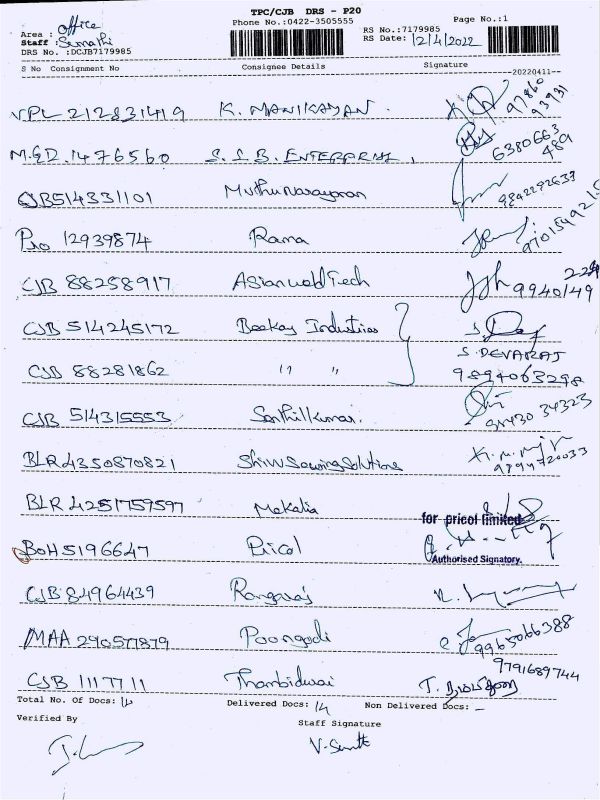 TPC/CJB DRS - P20
Phone No.:0422-3505555
Page No.:1
Area : office
Staff : Sumathi
DRS No. :DCJB7179985
RS No.:7179985
RS Date: 12/4/2022
S No Consignment No Consignee Details Signature
--20220411--
VPL 212831419 K. MANIKAYAN.
97860
93931
M.G.D. 1476560 S.S.B. ENTERPRISE,
6380663
489
CJB514331101 Muthu Narayanan
9842292633
Pro 12939874 Rama
9701549215
CJB 88258917 Asian weld Tech
9940149
229
CJB 514245172 Beekay Industries
S. DEVARAJ
CJB 88281862 " "
9894063298
CJB 514315553 Senthilkumar.
94430 34323
BLR 4350870821 Shiv Sewing Solutions
9894720033
BLR 4251759597 Mekalia
for pricol limited
BOH 5196647 Pricol
Authorised Signatory.
CJB 84964439 Rangaraj
MAA 290577879 Poongodi
9965066388
9791689744
CJB 1117711 Thambidurai
Total No. Of Docs: 14 Delivered Docs: 14 Non Delivered Docs: -
Verified By Staff Signature